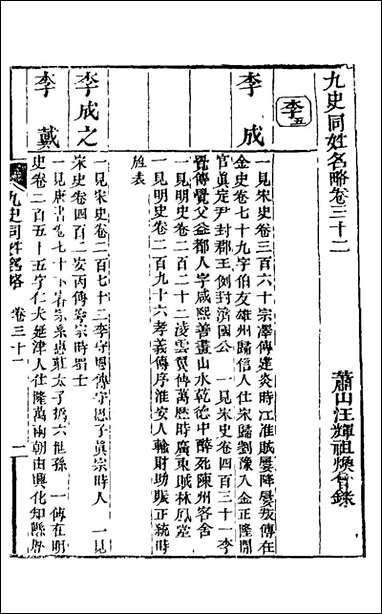 九史同姓名略卷三十二
蕭山汪輝祖煥曾錄
李五
李成
一見宋史卷三百六十宗澤傳建炎時江淮賊屢降屢叛傳在
金史卷七十九字伯友雄州歸信人仕宋歸劉豫入金正隆間
官真定尹封郡王例封濟國公 一見宋史卷四百三十一李
覺傳覺父益都人字咸熙善畫山水乾德中醉死陳州客舍
一見明史卷二百二十二凌雲翼傳萬歷時廣東賊林鳳黨
一見明史卷二百九十六孝義傳序淮安人輸財助賑正統時
旌表
李成之
一見宋史卷二百七十三李守恩傳守恩子真宗時人 一見
宋史卷四百二安丙傳寧宗時蜀士
李戴
一見唐書卷七十下宗室世系惠莊太子撝六世孫 一傳在明
史卷二百二十五字仁夫延津人仕隆萬兩朝由興化知縣歷
九史同姓名略
卷三十二
一